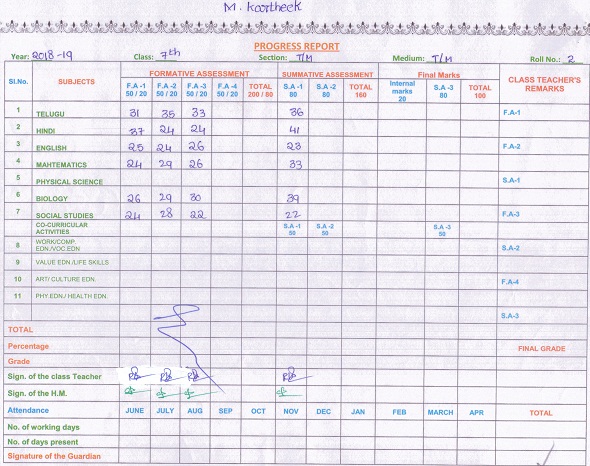 M. Kartheek
PROGRESS REPORT
Year: 2018-19 Class: 7th Section: T/M Medium: T/M Roll No.: 2
Sl.No. SUBJECTS FORMATIVE ASSESSMENT SUMMATIVE ASSESSMENT Final Marks CLASS TEACHER'S REMARKS
F.A -1 50 / 20 F.A -2 50 / 20 F.A -3 50 / 20 F.A -4 50 / 20 TOTAL 200 / 80 S.A -1 80 S.A -2 80 TOTAL 160 Internal marks 20 S.A -3 80 TOTAL 100
1 TELUGU 31 35 33 36 F.A-1
2 HINDI 37 24 24 41
3 ENGLISH 25 24 26 23 F.A-2
4 MAHTEMATICS 24 29 26 33
5 PHYSICAL SCIENCE S.A-1
6 BIOLOGY 26 29 30 39
7 SOCIAL STUDIES 24 28 22 22 F.A-3
CO-CURRICULAR ACTIVITIES S.A -1 50 S.A -2 50 S.A -3 50
8 WORK/COMP. EDN./VOC.EDN S.A-2
9 VALUE EDN./LIFE SKILLS
10 ART/ CULTURE EDN. F.A-4
11 PHY.EDN./ HEALTH EDN.
S.A-3
TOTAL
Percentage FINAL GRADE
Grade
Sign. of the class Teacher
Sign. of the H.M.
Attendance JUNE JULY AUG SEP OCT NOV DEC JAN FEB MARCH APR TOTAL
No. of working days
No. of days present
Signature of the Guardian